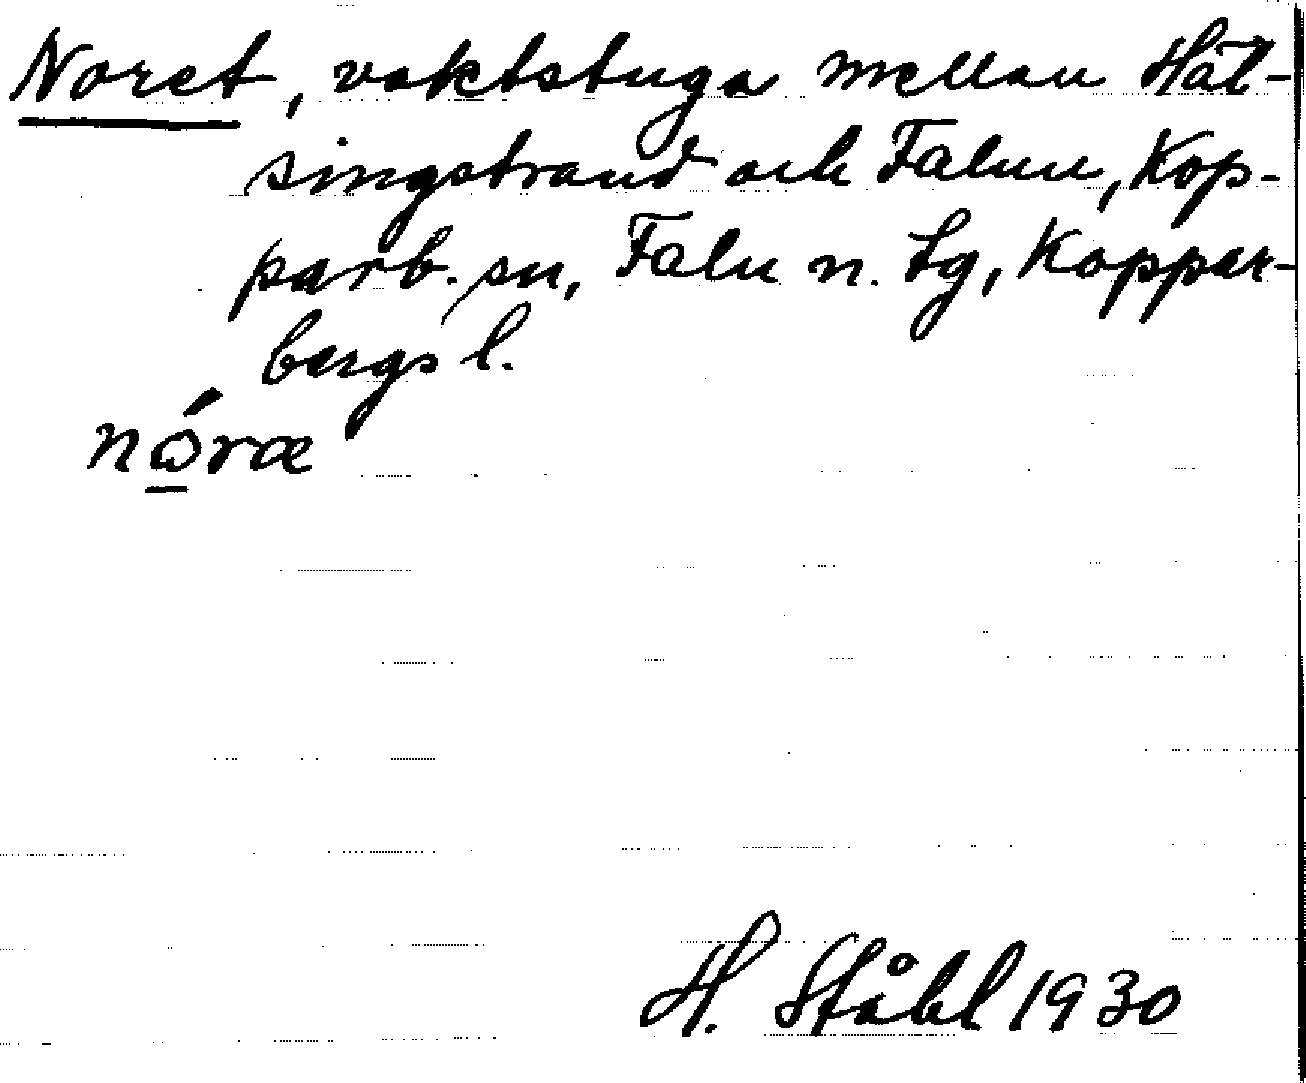 Noret, vaktstuga mellan Häl-
singstrand och Falun, Kop-
parb. sn, Falu n. tg, Koppar-
bergs l.
nó̲ræ
H. Ståhl 1930